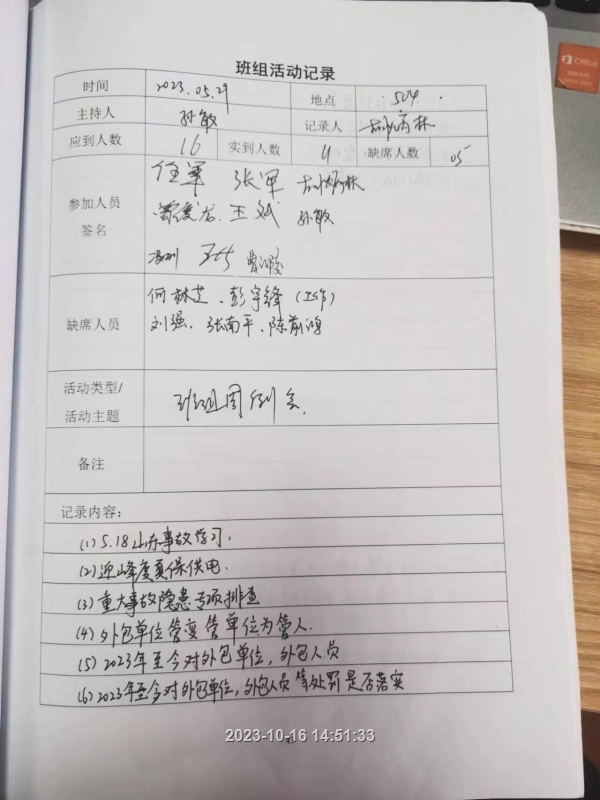 班组活动记录
时间 2023.05.29 地点 504.
主持人 孙敏 记录人
应到人数 16 实到人数 11 缺席人数 05
参加人员签名 任军 张军
曾俊龙 王斌 孙敏
缺席人员 何林芝、彭宇锋（工作）
刘强、张南平、陈前鸿
活动类型/活动主题 班组周例会.
备注
记录内容：
(1) 5.18山东事故学习.
(2) 迎峰度夏保供电.
(3) 重大事故隐患专项排查
(4) 外包单位管变管单位为管人.
(5) 2023年至今对外包单位，外包人员
(6) 2023年至今对外包单位，外包人员等处罚是否落实
2023-10-16 14:51:33
Office